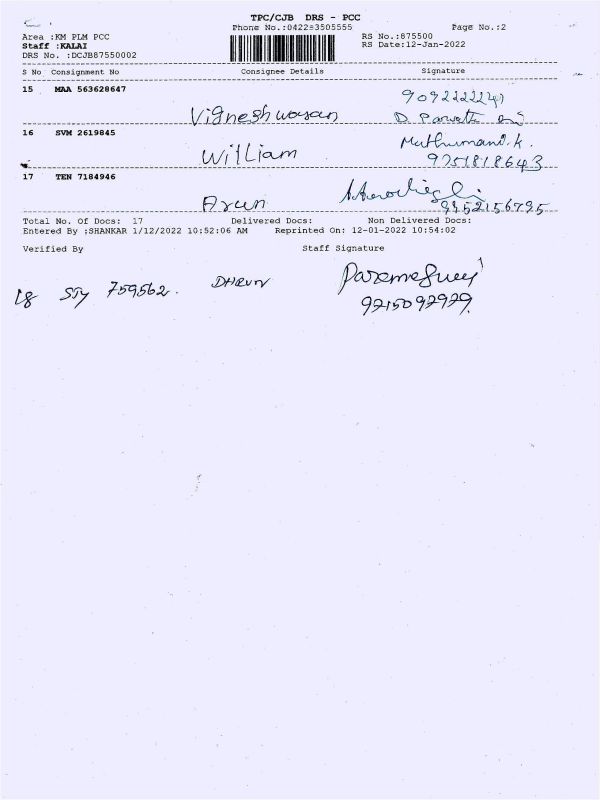 TPC/CJB DRS - PCC
Phone No.:0422-3505555 Page No.:2
Area :KM PLM PCC RS No.:875500
Staff :KALAI RS Date:12-Jan-2022
DRS No. :DCJB87550002
S No Consignment No Consignee Details Signature
15 MAA 563628647
Vigneshwaran D. Parvathi
16 SVM 2619845 Muthumani.k.
William 9751818643
17 TEN 7184946
Arun 9952156795
Total No. Of Docs: 17 Delivered Docs: Non Delivered Docs:
Entered By :SHANKAR 1/12/2022 10:52:06 AM Reprinted On: 12-01-2022 10:54:02
Verified By Staff Signature
18 STY 759562. DHRUV
9715097979.